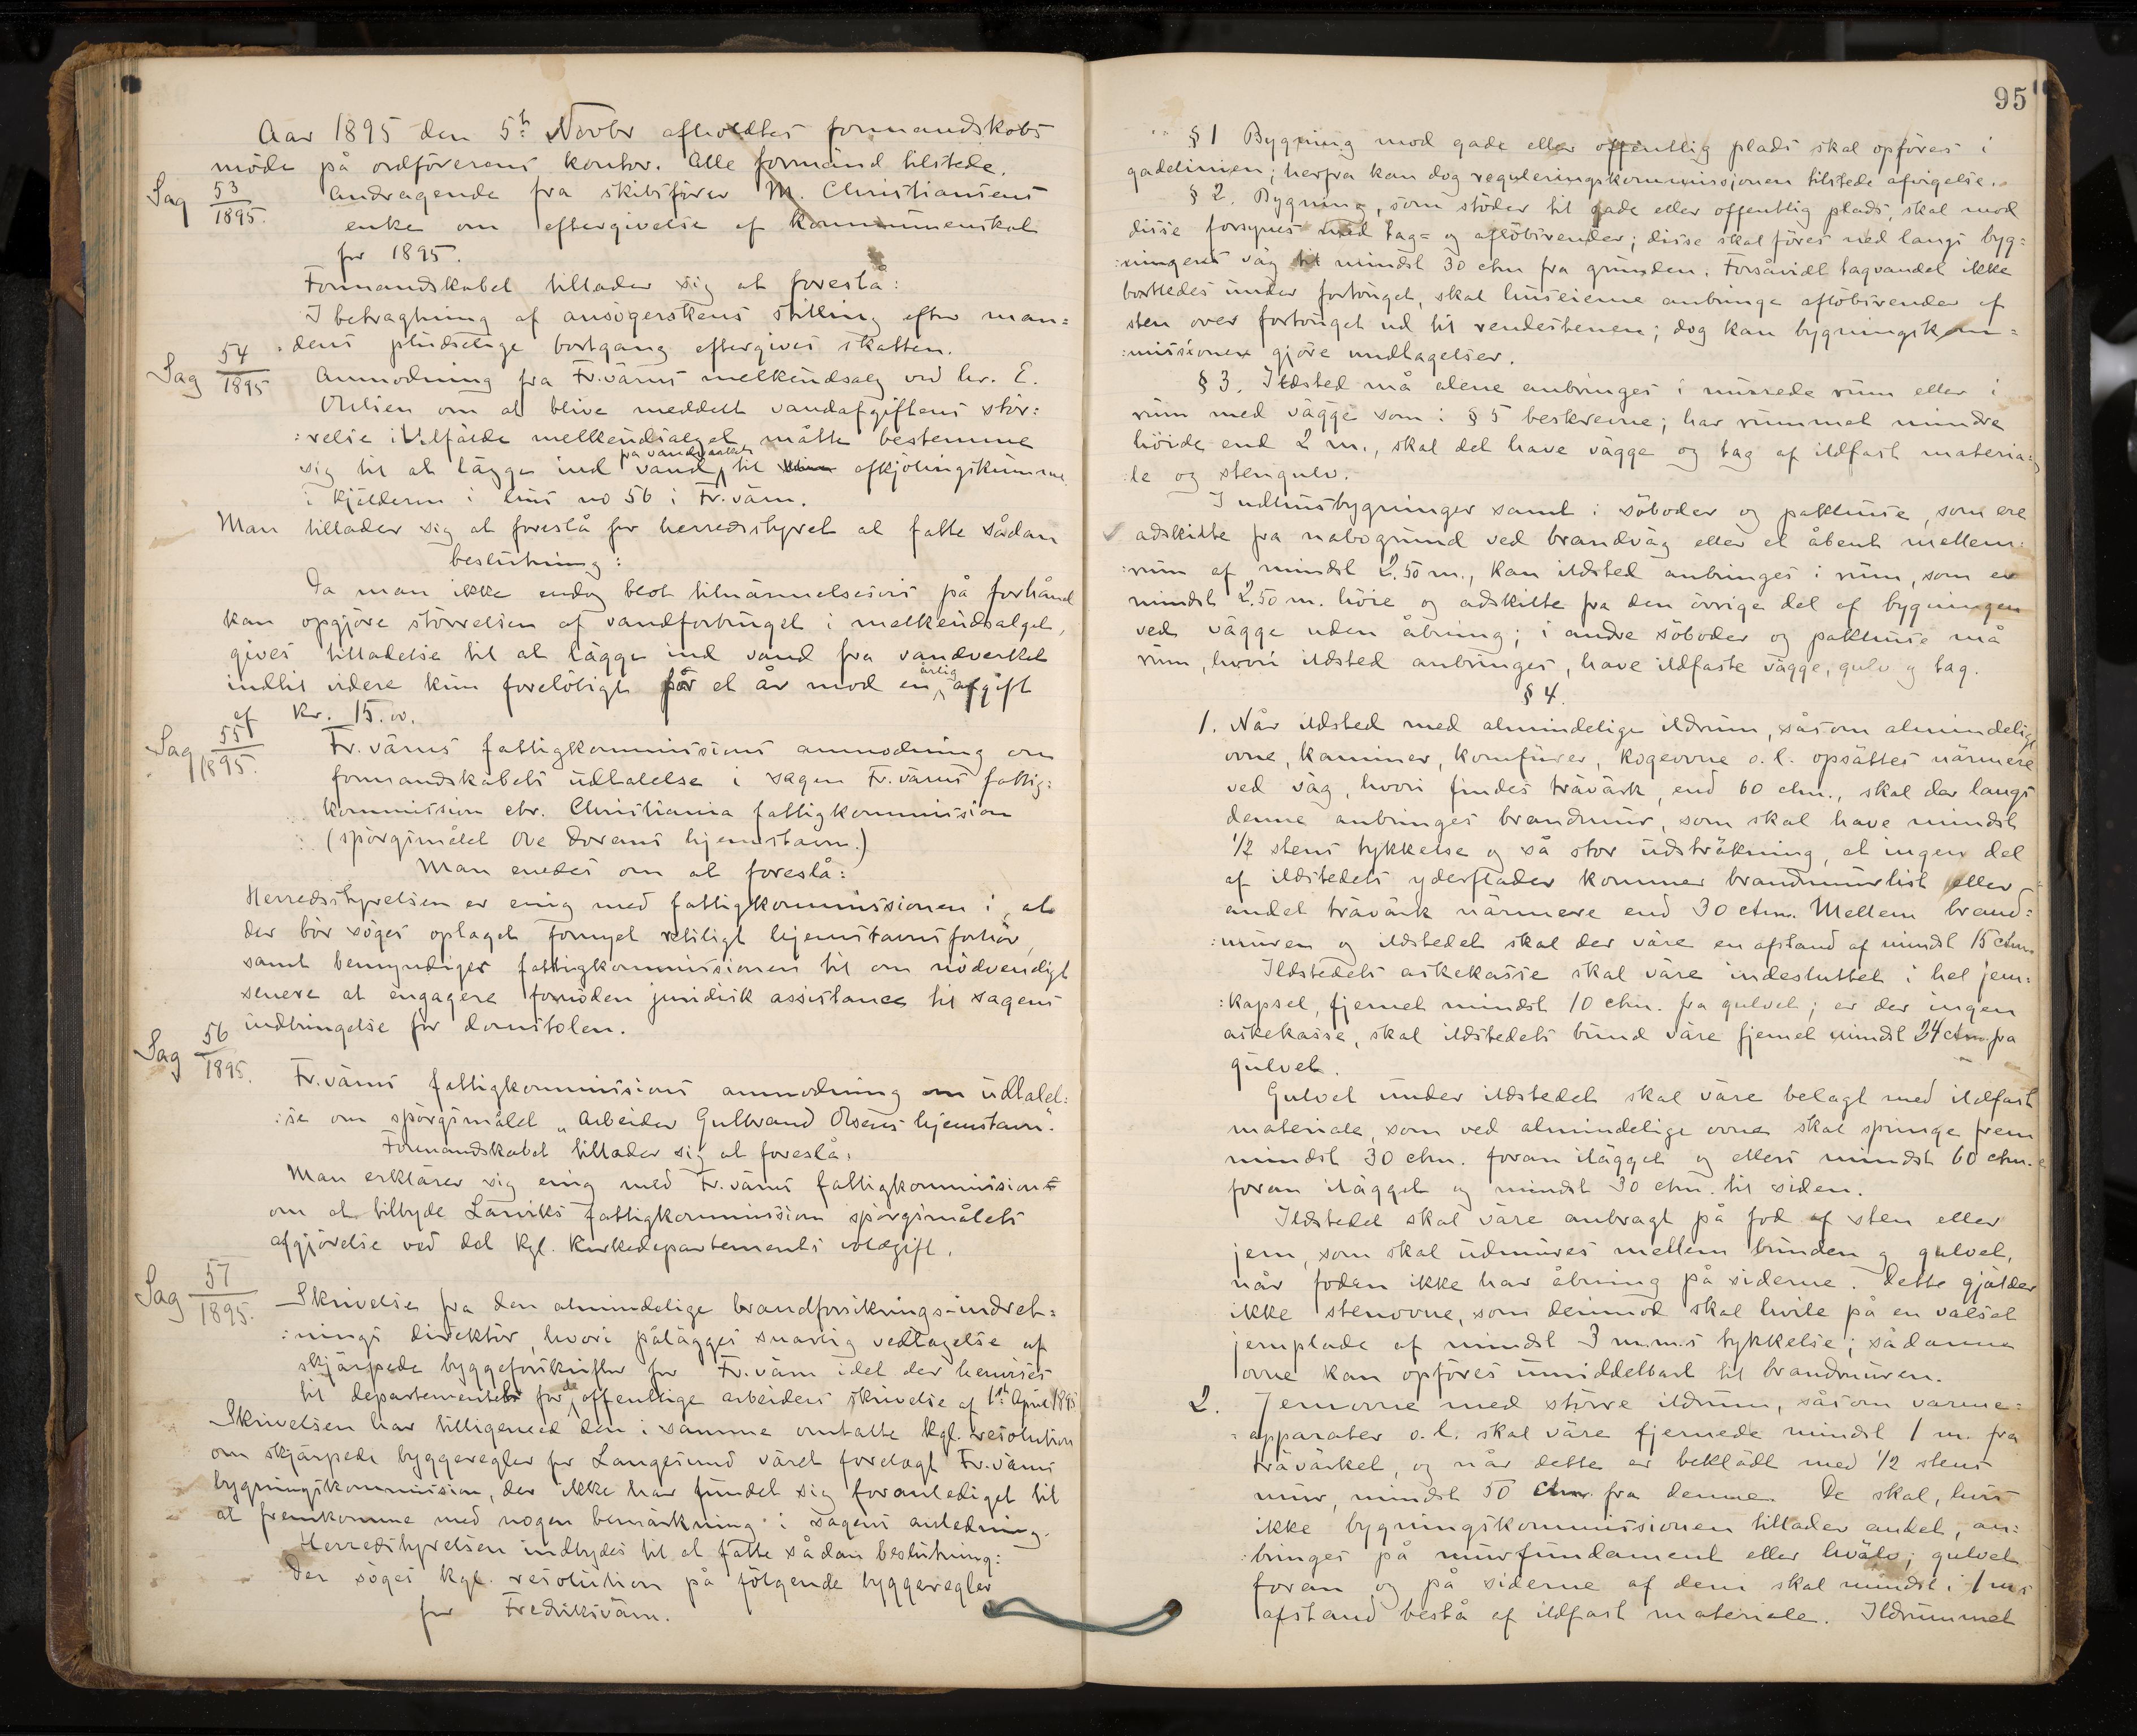 Aar 1895 den 5t Novbr afholdtes formandskabs
möde på ordförerens kontor. Alle formänd tilstede.
Sag 53/1895. Andragende fra skibsförer M. Christiansens
enke om eftergivelse af kommuneskat
for 1895.
Formandskabet tillader sig at foreslå:
I betragtning af ansögerskens stilling efter man=
=dens pludselige bortgang eftergives skatten.
Sag 54/1895 Anmodning fra Fr.värns melkeudsalg ved hr. E.
Ohlsen om at blive meddelt vandafgiftens stör:
:relse ifald melkeudsalget måtte bestemme
sig til at lägge ind vand til afkjölingskumme
i kjelderen i hus no 56 i Fr.värn.
Man tillader sig at foreslå for herredsstyret at fatte sådan
beslutning:
Da man ikke endog blot tilnärmelsesvis på forhånd
kan opgjöre störrelsen af vandforbruget i melkeudsalget,
gives tilladelse til at lägge ind vand fra vandverket
indtil videre kun foreløbigt for et år mod en årlig afgift
af kr. 15.00.
Sag 55/1895. Fr.värns fattigkommissions anmodning om
formandskabets udtalelse i sagen Fr.värns fattig:
kommission ctr. Christiania fattigkommission
(spörgsmålet Ove Dorans hjemstavn.)
Man enedes om at foreslå:
Herredsstyrelsen er enig med fattigkommissionen i, at
der bör söges optaget fornyet retsligt hjemstavnsforhör,
samt bemyndiges fattigkommissionen til om nödvendigt
senere at engagere fornöden juridisk assistance til sagens
indbringelse for domstolen.
Sag 56/1895. Fr.värns fattigkommissions anmodning om udtalel:
:se om spörgsmålet „Arbeider Gulbrand Olsens hjemstavn."
Formandskabet tillader sig at foreslå:
Man erklärer sig enig med Fr.värns fattigkommission
om at tilbyde Larviks fattigkommission spörgsmålets
afgjörelse ved det kgl. Kirkedepartements voldgift.
Sag 57/1895. Skrivelse fra den almindelige brandforsikrings-indret=
:nings direktör, hvori pålägges snarlig vedtagelse af
skjärpede byggeforskrifter for Fr.värn idet der henvises
til departementet for de offentlige arbeiders skrivelse af 1st April 1895
Skrivelsen har tilligemed den i samme omtalte kgl. resolution
om skjärpede byggeregler for Langesund väret forelagt Fr.värns
bygningskommission, der ikke har fundet sig foranlediget til
at fremkomme med nogen bemärkning i sagens anledning.
Herredsstyrelsen indbydes til at fatte sådan beslutning:
Der söges kgl. resolution på fölgende byggeregler
for Fredriksvärn.
95
§ 1 Bygning mod gade eller offentlig plads skal opföres i
gadelinien; herfra kan dog reguleringskommissjonen tilstede afvigelse.
§ 2. Bygning, som stöder til gade eller offentlig plads, skal mod
disse forsynes med tag= og aflöbsrender; disse skal föres ned langs byg=
:ningens väg til mindst 30 ctm fra grunden. Forsåvidt tagvandet ikke
bortledes under fortouget, skal huseierne anbringe aflöbsrender af
sten over fortouget ud til rendestenene; dog kan bygningskom=
:missionen gjöre undtagelser.
§ 3. Ildsted må alene anbringes i murede rum eller i
rum med vägge som i § 5 beskrevne; har rummet mindre
höide end 2 m., skal det have vägge og tag af ildfast materia=
:le og stengulv.
I udhusbygninger samt i söboder og pakhuse, som ere
adskilte fra nabogrund ved brandväg eller et åbent mellem:
:rum af mindst 2.50 m., kan ildsted anbringes i rum, som er
mindst 2.50 m. höie og adskilte fra den övrige del af bygningen
ved vägge uden åbning; i andre söboder og pakhuse må
rum, hvori ildsted anbringes, have ildfaste vägge, gulv og tag.
§ 4.
1. Når ildsted med almindelige ildrum, såsom almindelige
ovne, kaminer, komfurer, kogeovne o. l. opsättes närmere
ved väg, hvori findes trävärk, end 60 ctm., skal der langs
denne anbringes brandmur, som skal have mindst
1/2 stens tykkelse og så stor udsträkning, at ingen del
af ildstedets yderflader kommer brandmurlist eller
andet trävärk närmere end 30 ctm. Mellem brand=
:muren og ildstedet skal der väre en afstand af mindst 15 ctm
Ildstedets askekasse skal väre indesluttet i hel jern:
:kapsel, fjernet mindst 10 ctm. fra gulvet; er der ingen
askekasse, skal ildstedets bund väre fjernet mindst 24 ctm. fra
gulvet.
Gulvet under ildstedet skal väre belagt med ildfast
materiale, som ved almindelige ovne skal springe frem
mindst 30 ctm. foran ilägget og ellers mindst 60 ctm.
foran ilägget og mindst 30 ctm. til siden.
Ildstedet skal väre anbragt på fod af sten eller
jern, som skal udmures mellem bunden og gulvet,
når foden ikke har åbning på siderne. Dette gjälder
ikke stenovne, som derimod skal hvile på en valset
jernplade af mindst 3 m.m.s tykkelse; sådanne
ovne kan opföres umiddelbart til brandmuren.
2. Jernovne med större ildrum, såsom varme=
=apparater o. l. skal väre fjernede mindst 1 m. fra
trävärket, og når dette er beklädt med 1/2 stens
mur, mindst 50 ctm. fra denne. De skal, hvis
ikke bygningskommissionen tillader andet, an:
:bringes på murfundament eller hvälv; gulvet
foran og på siderne af dem skal mindst i 1 m.s
afstand bestå af ildfast materiale. Ildrummet